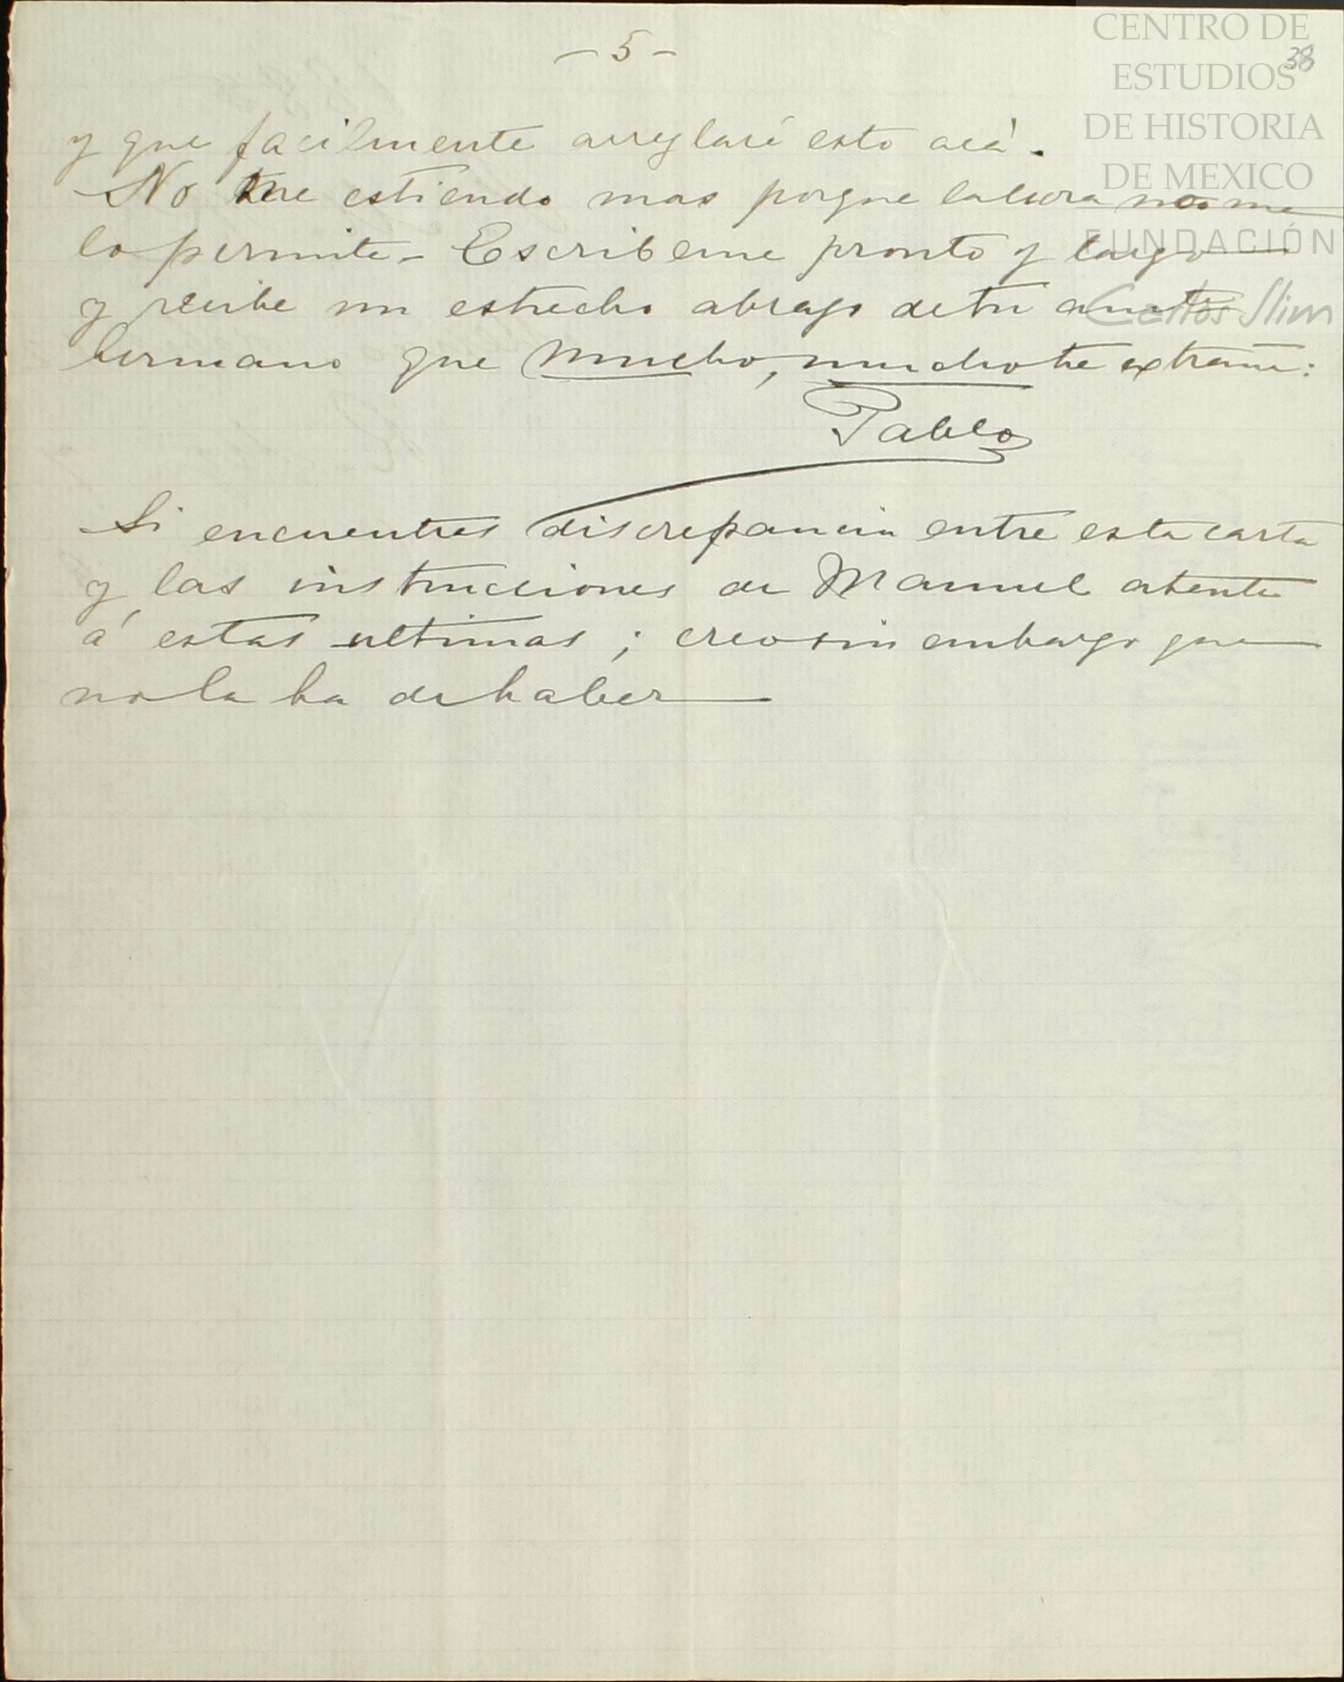 - 5 -
38
CENTRO DE
ESTUDIOS
DE HISTORIA
DE MEXICO
FUNDACIÓN
Carlos Slim
y que facilmente arreglaré esto acá.
No me estiendo mas porque la hora no me
lo permite - Escribeme pronto y largo
y recibe un estrecho abrazo de tu
hermano que mucho, mucho te extraña:
Pablo
Si encuentras discrepancia entre esta carta
y las instrucciones de Manuel atente
á estas ultimas; creo sin embargo que
no la ha de haber